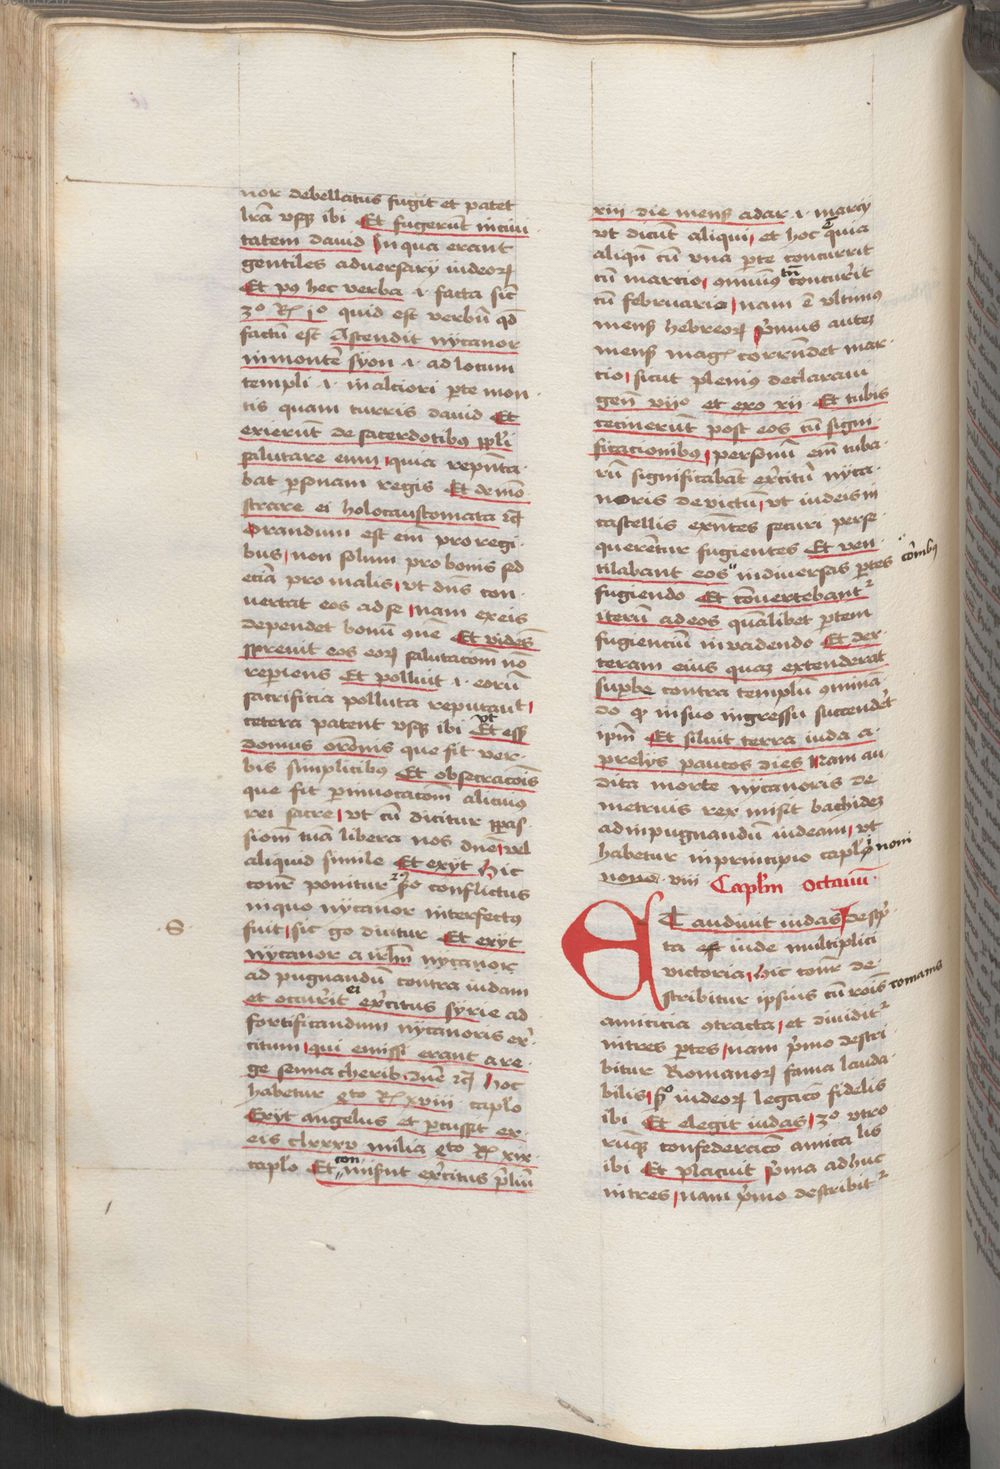 nor debellatus fugit et patet
lr̄a vsqꝫ ibi Et fugerūt in ciui
tatem dauid In qua erant
gentiles aduersarij iudeoꝝ
Et pꝰ hec verba .i. facta sic̄
3º Rꝫ iº quid est verbū qd̄
factū est Ascendit nycanor
in montē syon .i. ad locum
templi .i. in alciori ꝑte mon
tis quam turris dauid Et
exierūt de sacerdotibꝰ ppl̄i
salutare eum quia repn̄ta
bat ꝑsonam regis Et demō
strare ei holocaustomata ꝛc̄
Orandum est em̄ pro regi
bus non solum pro bonis sed
eciā pro malis vt dn̄s con
uertat eos ad se nam ex eis
dependet bonū ꝯmūe Et vides
spreuit eos eoꝝ salutacōm nō
recipiens Et polluit .i. eorū
sacrificia polluta reputauit
cetera patent vsqꝫ ibi Et vt esset
domus orōnis que fit ver
bis simplicibꝰ Et obsecracōis
que fit ꝑ inuocacōm alicuiꝰ
rei sacre vt cū dicitur ꝑ pas
siōm tuā libera nos dn̄e vel
aliquid simile Et exyt Hic
conr̄ ponitur 2º ꝑo conflictus
in quo nycanor interfectꝰ
fuit sic go dicitur Et exyt
nycanor a irlm̄ nycanor
ad pugnandū contra iudam
et occurit ei exercitus syrie ad
fortificandum nycanoris exer
citum qui emissi erant a re
ge sennacherib dn̄e ꝛc̄ hoc
habetur qͣto Rꝫ xviii caplo
Exyt angelus et ꝑcussit ex
eis clxxxv milia qͣto Rꝫ xix
caplo Et con misernt exercitus p̄liū
S
xiii die mensis adar .i. marcij
vt dicūt aliqui et hoc quia
aliqn̄ cū vna ꝑte concurrit
cū marcio ꝯmuniꝰ tn̄ concurit
cū februario nam ē vltimus
mensis hebreoꝝ pͥmus autem
mensis magꝫ corrn̄det mar
cio sicut plenius declaraui
gen̄ vijº et exo xii Et tubis
cecinerūt post eos cū signi
ficacionibꝰ ꝑ sonū em̄ tuba
rū significabāt exercitū nyca
noris deuictū vt iudeis in
castellis exn̄tes securi perse
querentur fugientes Et ven
tilabant eos cornibꝰ in diuersas ꝑtes
fugiendo Et conuertebantur
iterū ad eos quālibet ꝑtem
fugienciū inuadendo Et dex
teram eius quaꝫ extenderat
supbe contra templū ꝯmina
do ꝙ in suo ingressu succenderet
ipm̄ Et siluit terra iuda a
prelijs paucos dies Nam au
dita morte nycanoris de
metrius rex misit bachidez
ad inpugnandū iudeam vt
habetur in principio capl̓i noni
nono viii Caplm Octauū
Et audiuit iudas Descͥp
ta et iude multiplici
victoria hic conr̄ de
scribitur ipsius cū roīs romanis
amicicia ꝯtracta et diuiditur
in tres ꝑtes nam pͥmo descri
bitur Romanoꝝ fama lauda
bilis 2º iudeoꝝ legacō fidelis
ibi Et elegit iudas 3º vtro
rūqꝫ confederacō amica lis
ibi Et placuit pͥma adhuc
in tres nam pͥmo describitur